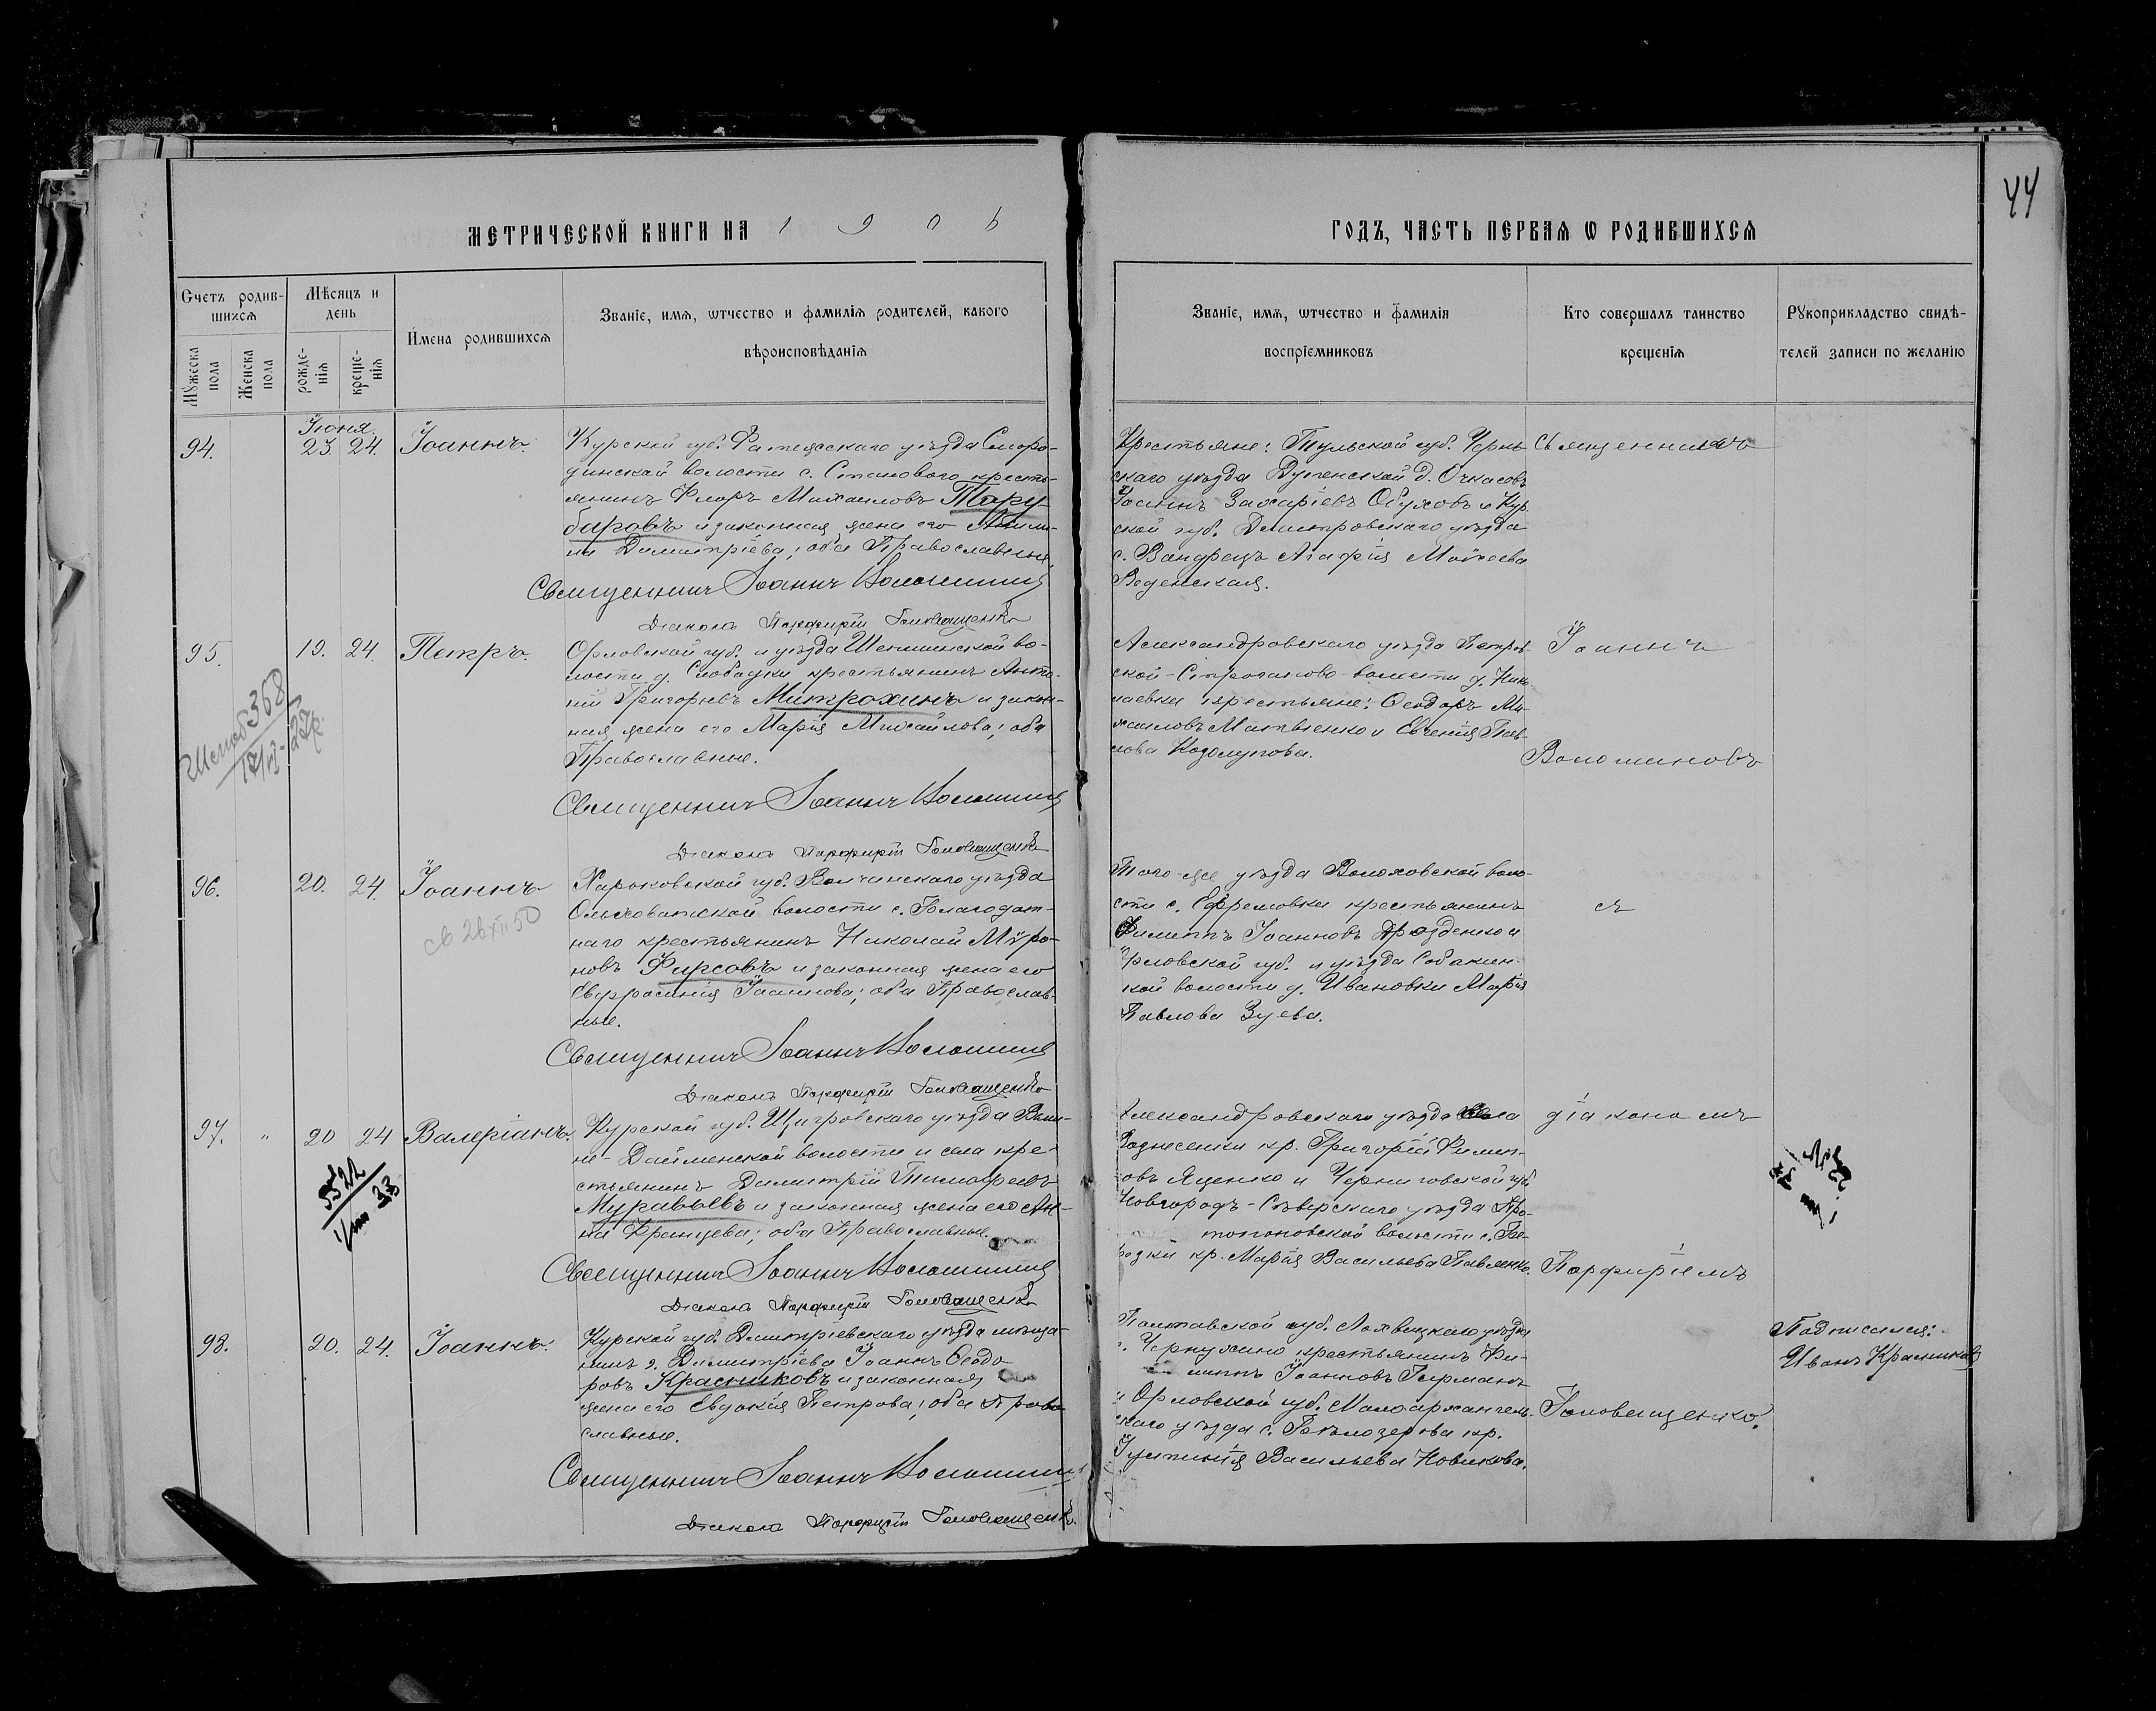 44
МЕТРИЧЕСКОЙ КНИГИ НА 1906
ГОДЪ, ЧАСТЬ ПЕРВАЯ Ѡ РОДИВШИХСЯ
Счетъ родив-
шихся
Мѣсяцъ и
день
Имена родившихся
Званіе, имя, ѡтчество и фамилія родителей, какого
вѣроисповѣданія
Мꙋжеска
пола
Женска
пола
рожде-
нія
креще-
нія
Званіе, имя, ѡтчество и фамилія
воспріемниковъ
Кто совершалъ таинство
крещенія
Рꙋкоприкладство свидѣ-
телей записи по желанію
Іюня.
94. 23. 24. Іоаннъ.
Курской губ. Фатежскаго уѣзда Сморо-
динской волости с. Станового кресть-
янинъ Флоръ Михаиловъ Тару-
баровъ и законная жена его
Димитріева; оба Православные.
Священникъ Іоаннъ Волошиновъ
Діаконъ Порфирій Головащенко
Крестьяне: Тульской губ. Чернь-
скаго уѣзда д.
Іоаннъ Захаріевъ Обуховъ и Кур-
ской губ. Дмитровскаго уѣзда
с. Агафія Моѵсеева
Священникъ
95. 19. 24. Петръ.
Орловской губ. и уѣзда во-
лости д. Слободки крестьянинъ Анто-
ній Григорьевъ Митрохинъ и закон-
ная жена его Марія Михайлова; оба
Православные.
Священникъ Іоаннъ Волошиновъ
Діаконъ Порфирій Головащенко
Александровскаго уѣзда Петров-
ской-Строганово волости д. Нико-
лаевки крестьяне: Ѳеодоръ Ми-
хаиловъ Матвѣенко и Евгенія Пав-
лова Козолупова.
Іоаннъ
Волошиновъ
368
96. 20. 24. Іоаннъ
св 26 XII 50
Харьковской губ. Волчанскаго уѣзда
Ольховатской волости с. Благодат-
наго крестьянинъ Николай Мѵро-
новъ Фирсовъ и законная жена его
Евфросинія Іоаннова; оба Православ-
ные.
Священникъ Іоаннъ Волошиновъ
Діаконъ Порфирій Головащенко
Того-же уѣзда Волоховской воло-
сти с. Ефремовки крестьянинъ
Филиппъ Іоанновъ Дрозденко и
Орловской губ. и уѣзда
кой волости д. Ивановки Марія
Павлова Зуева.
съ
97. " 20 24 Валеріанъ.
5522
33
Курской губ. Щигровскаго уѣзда Выш-
не-Дайменской волости и села кре-
стьянинъ Димитрій Тимофеевъ
Муравьевъ и законная жена его Ан-
на Францева; оба Православные.
Священникъ Іоаннъ Волошиновъ
Діаконъ Порфирій Головащенко
Александровскаго уѣзда села
Вознесенки кр. Григорій Филип-
овъ Яценко и Черниговской губ.
Новгородъ-Сѣверскаго уѣзда Про-
топоповской волости с.
кр. Марія Васильева Павленко.
діакономъ
Порфиріемъ
98. 20. 24. Іоаннъ.
Курской губ. Дмитріевскаго уѣзда мѣща-
нинъ г. Димитріева Іоаннъ Ѳеодо-
ровъ Красниковъ и законная
жена его Евдокія Петрова; оба Право-
славные.
Священникъ Іоаннъ Волошиновъ
Діаконъ Порфирій Головащенко
Полтавской губ. Лохвицкаго уѣзда
с. Чернухино крестьянинъ Фи-
липпъ Іоанновъ Германъ
и Орловской губ. Малоархангель-
скаго уѣзда с. Бѣлозерова кр.
Іустинія Васильева Новикова.
Головащенко.
Подписался:
Иванъ Красниковъ